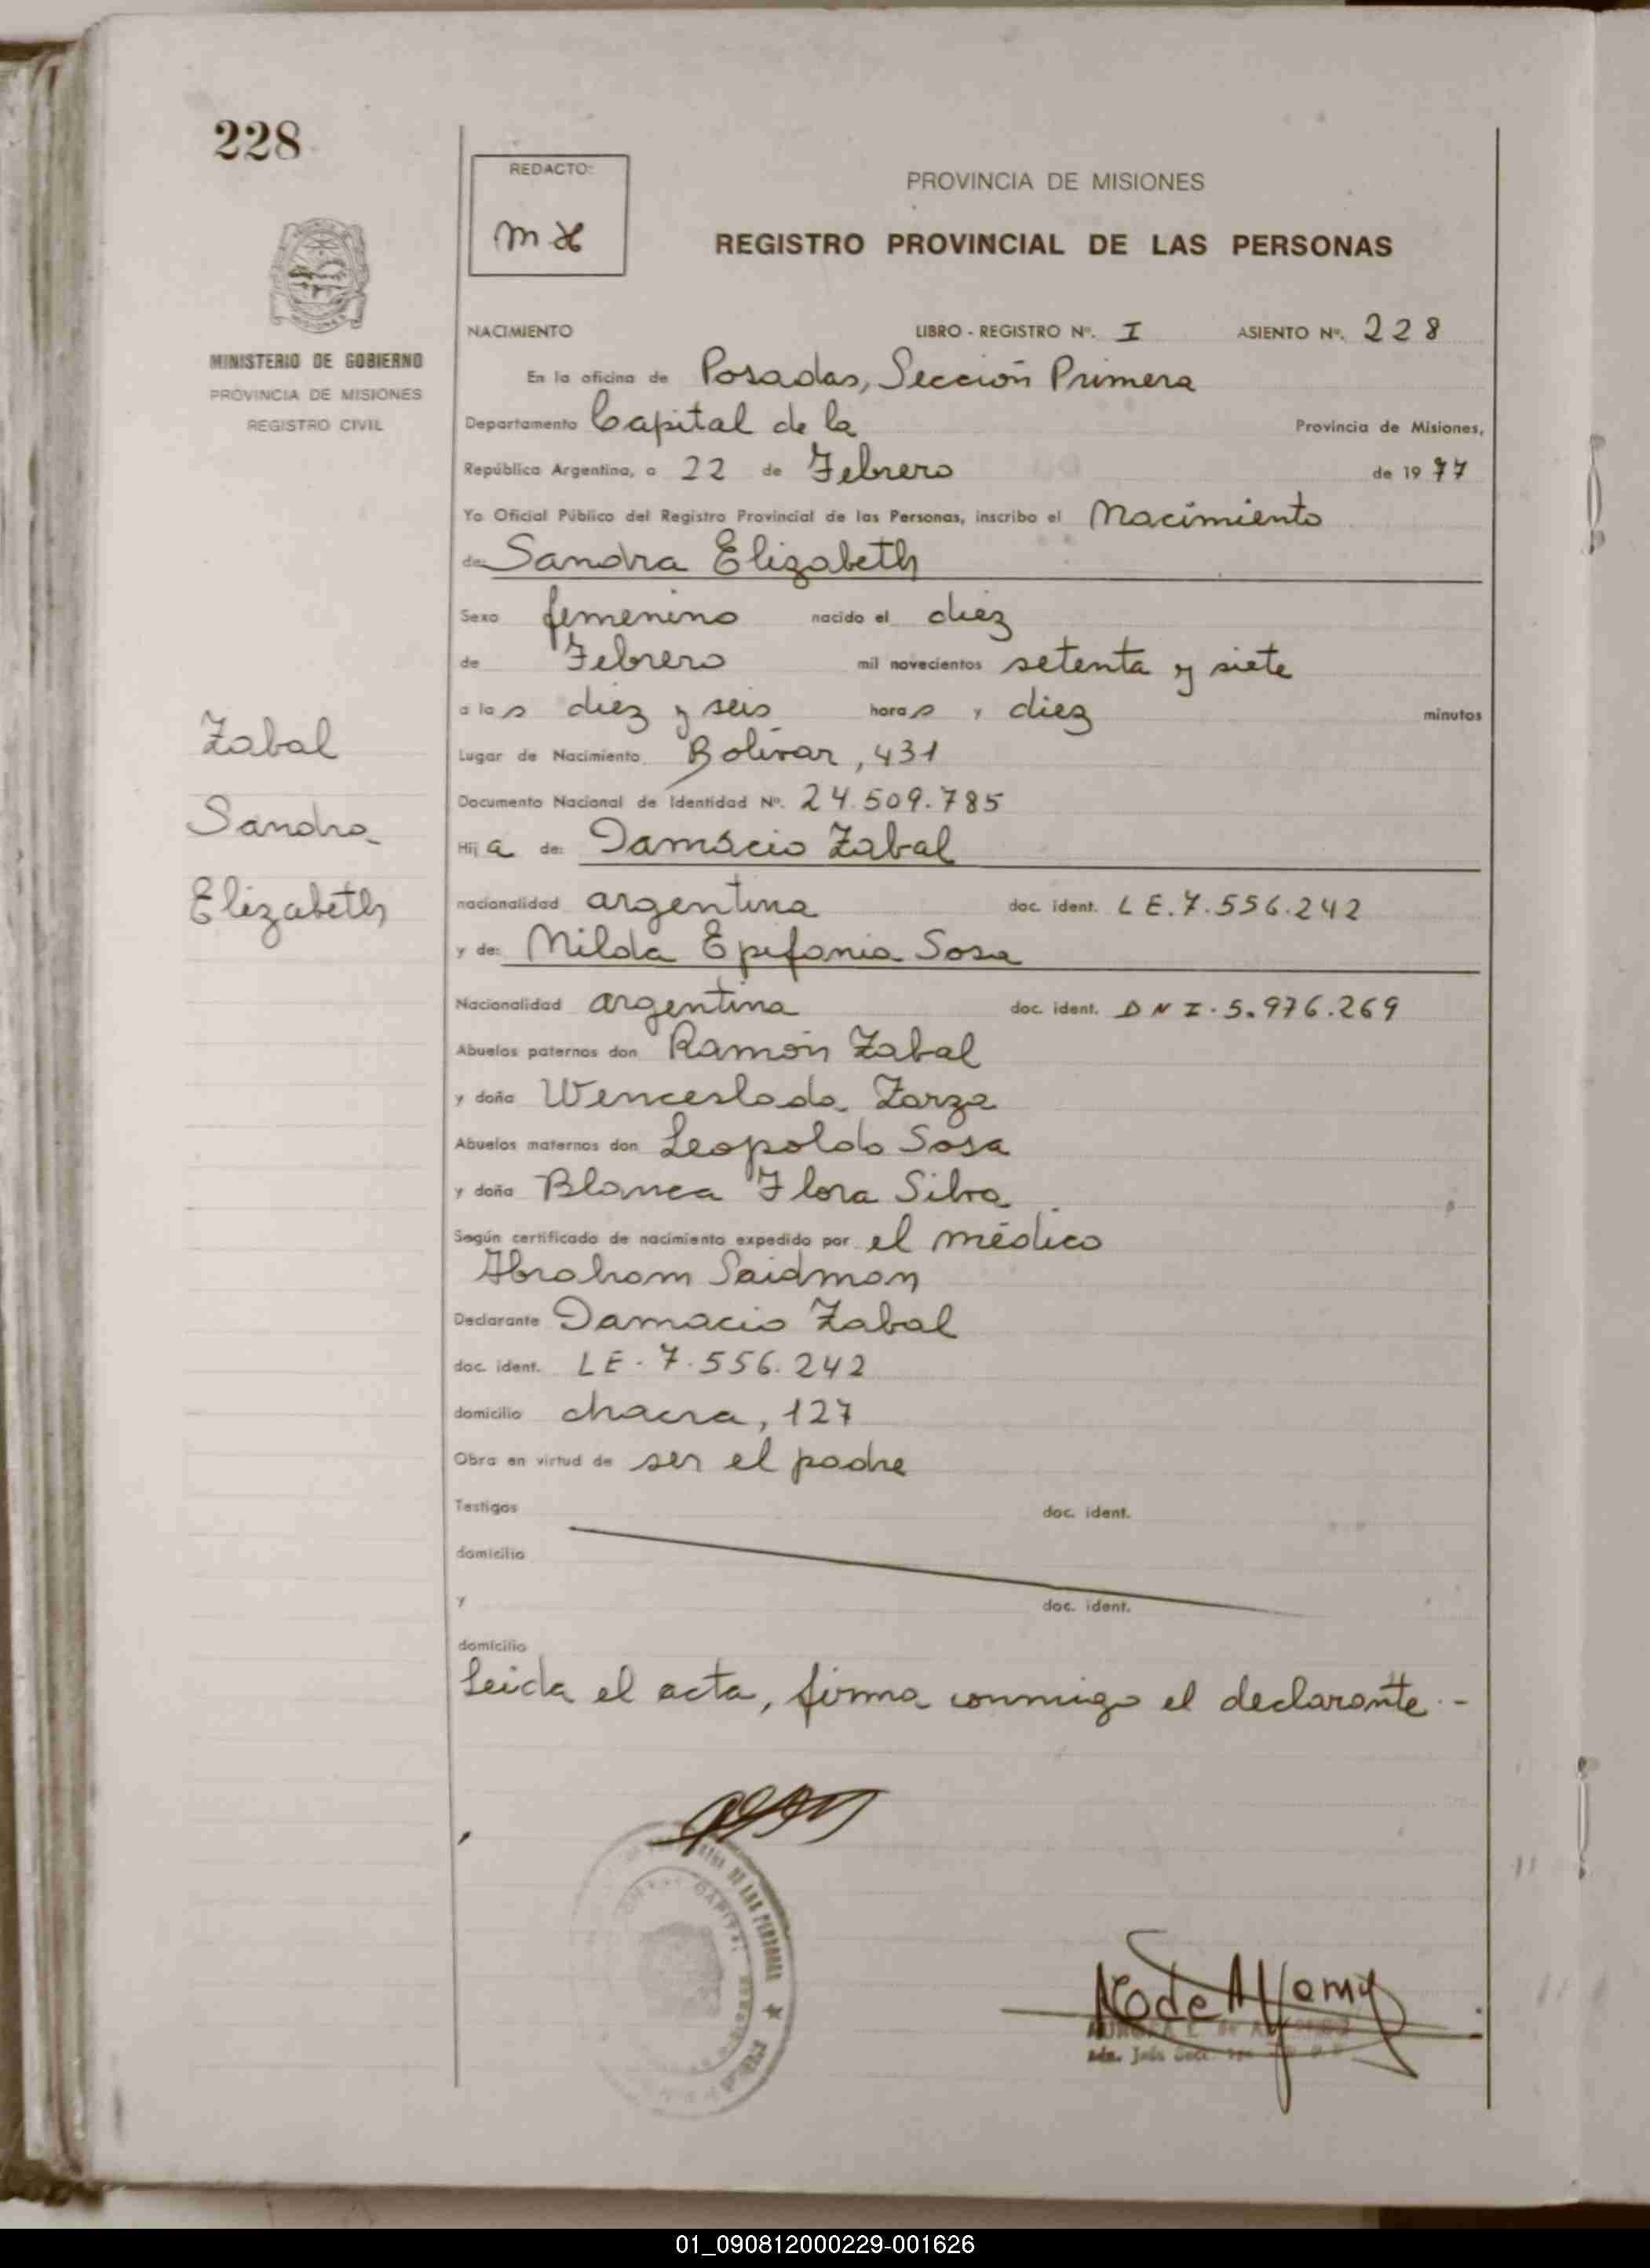 228
REDACTO:
PROVINCIA DE MISIONES
REGISTRO PROVINCIAL DE LAS PERSONAS
MINISTERIO DE GOBIERNO
PROVINCIA DE MISIONES
REGISTRO CIVIL
Zabal
Sandra
Elizabeth
NACIMIENTO LIBRO - REGISTRO Nº. I ASIENTO Nº. 228
En la oficina de Posadas, Sección Primera
Departamento Capital de la Provincia de Misiones,
República Argentina, a 22 de Febrero de 1977
Yo Oficial Público del Registro Provincial de las Personas, inscribo el Nacimiento
de: Sandra Elizabeth
Sexo femenino nacido el diez
de Febrero mil novecientos setenta y siete
a las diez y seis horas y diez minutos
Lugar de Nacimiento Bolívar, 431
Documento Nacional de Identidad Nº. 24.509.785
Hija de: Damacio Zabal
nacionalidad argentina doc. ident. LE.7.556.242
y de: Nilda Epifania Sosa
Nacionalidad argentina doc. ident. DNI.5.976.269
Abuelos paternos don Ramón Zabal
y doña Wenceslada Zarza
Abuelos maternos don Leopoldo Sosa
y doña Blanca Flora Silva
Según certificado de nacimiento expedido por el médico
Abraham Saidman
Declarante Damacio Zabal
doc. ident. LE-7.556.242
domicilio chacra, 127
Obra en virtud de ser el padre
Testigos doc. ident.
domicilio
y doc. ident.
domicilio
Leida el acta, firma conmigo el declarante.-
DE LAS PERSONAS
CAPITAL
01_090812000229-001626